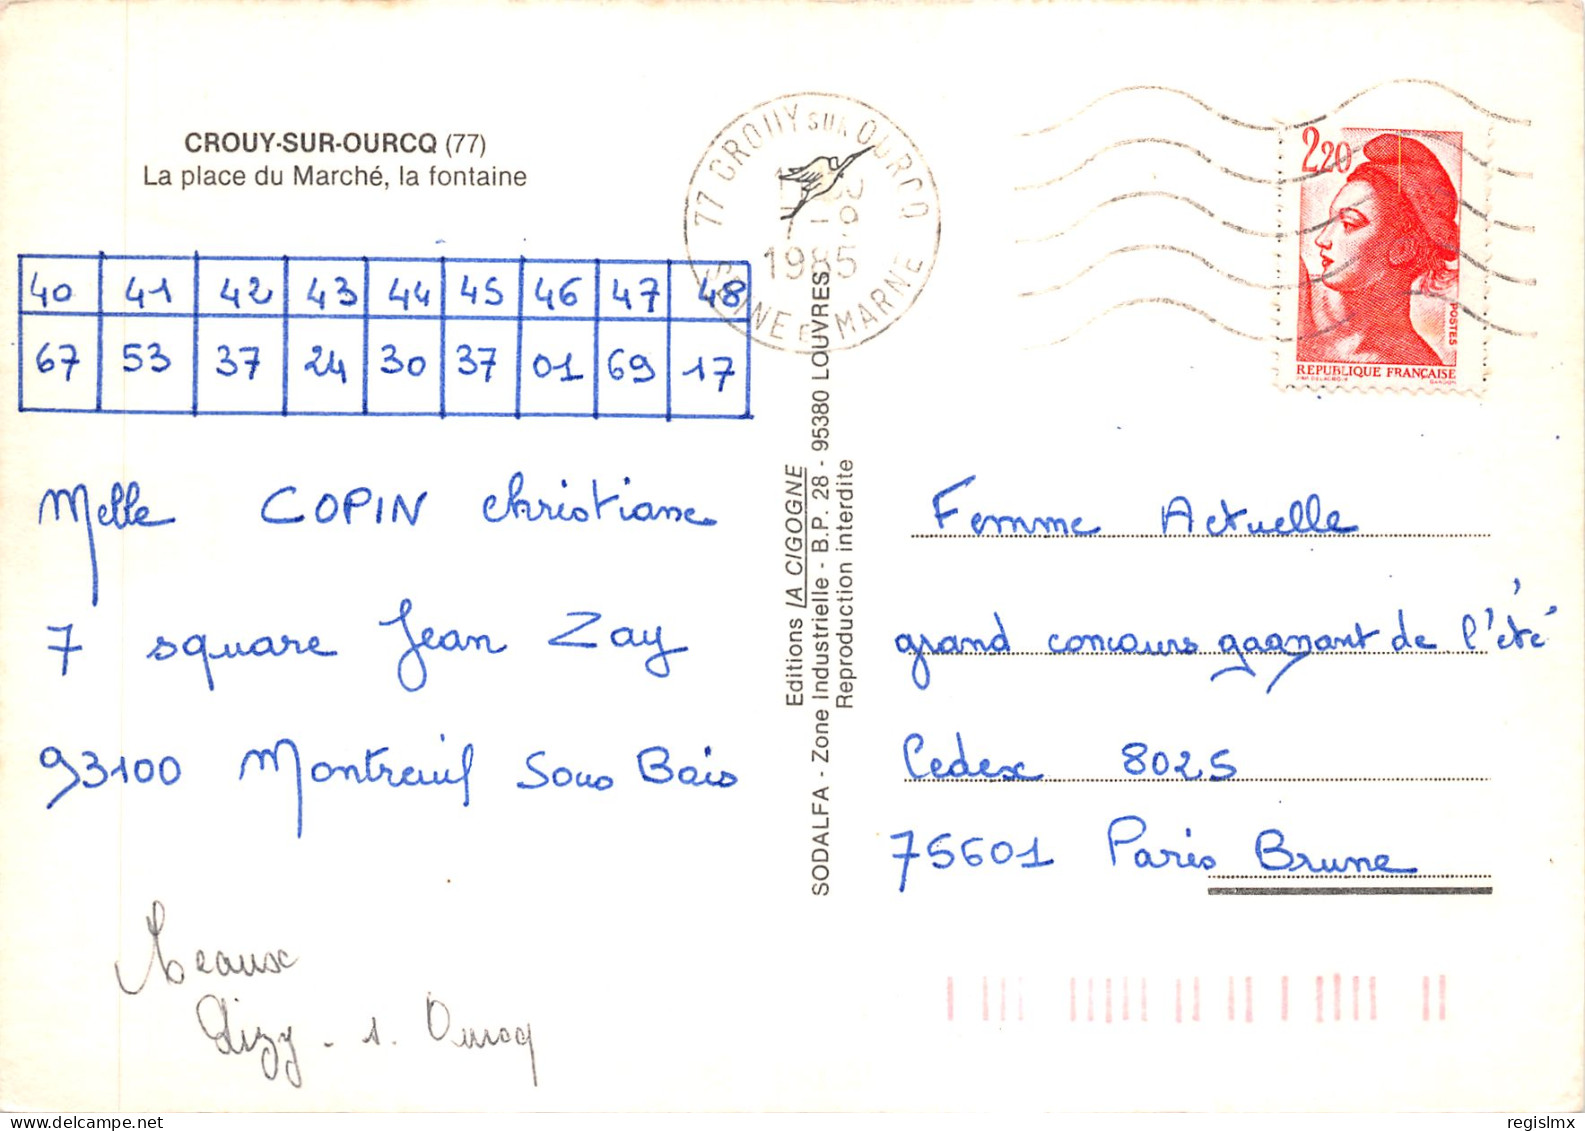 CROUY-SUR-OURCQ (77)
La place du Marché, la fontaine
40 41 42 43 44 45 46 47 48
67 53 37 24 30 37 01 69 17
Melle COPIN christiane
7 square Jean Zay
93100 Montreuil Sous Bois
Meaux
Lizy - s. Ourcq
77 CROUY SUR OURCQ
1985
SEINE ET MARNE
Editions LA CIGOGNE
SODALFA - Zone Industrielle - B.P. 28 - 95380 LOUVRES
Reproduction interdite
2,20
POSTES
REPUBLIQUE FRANÇAISE
Femme Actuelle
grand concours gagnant de l'été
Cedex 8025
75601 Paris Brune
regislmx